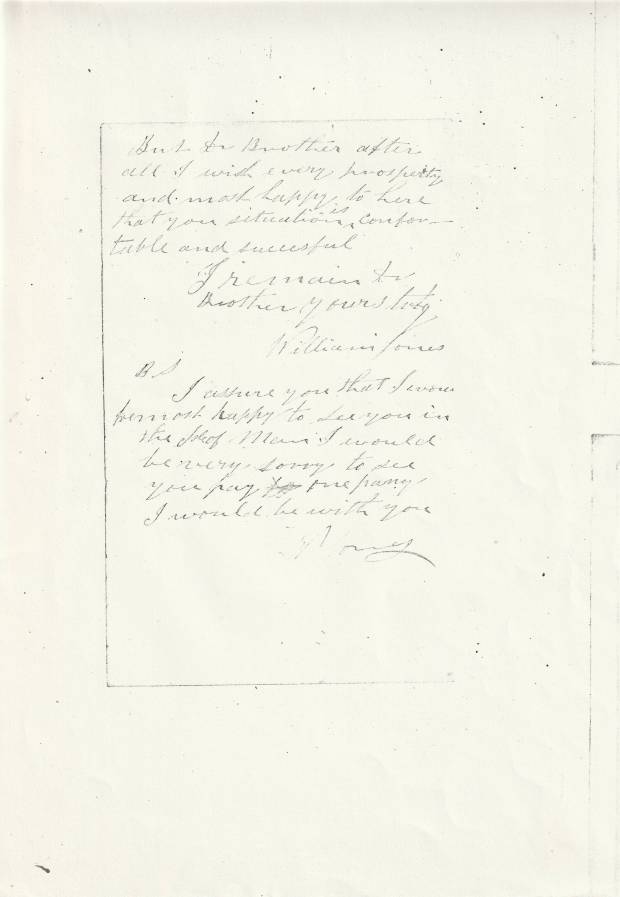 But Dr Brother after
all I wish every prosperity
and most happy to here
that you situation is confor-
table and succesful
I remain Dr
Brother yours truly
William Jones
P S
I assure you that I would
be most happy to see you in
the Isle of Man I would
be very sorry to see
you pay one pany
I would be with you
W Jones